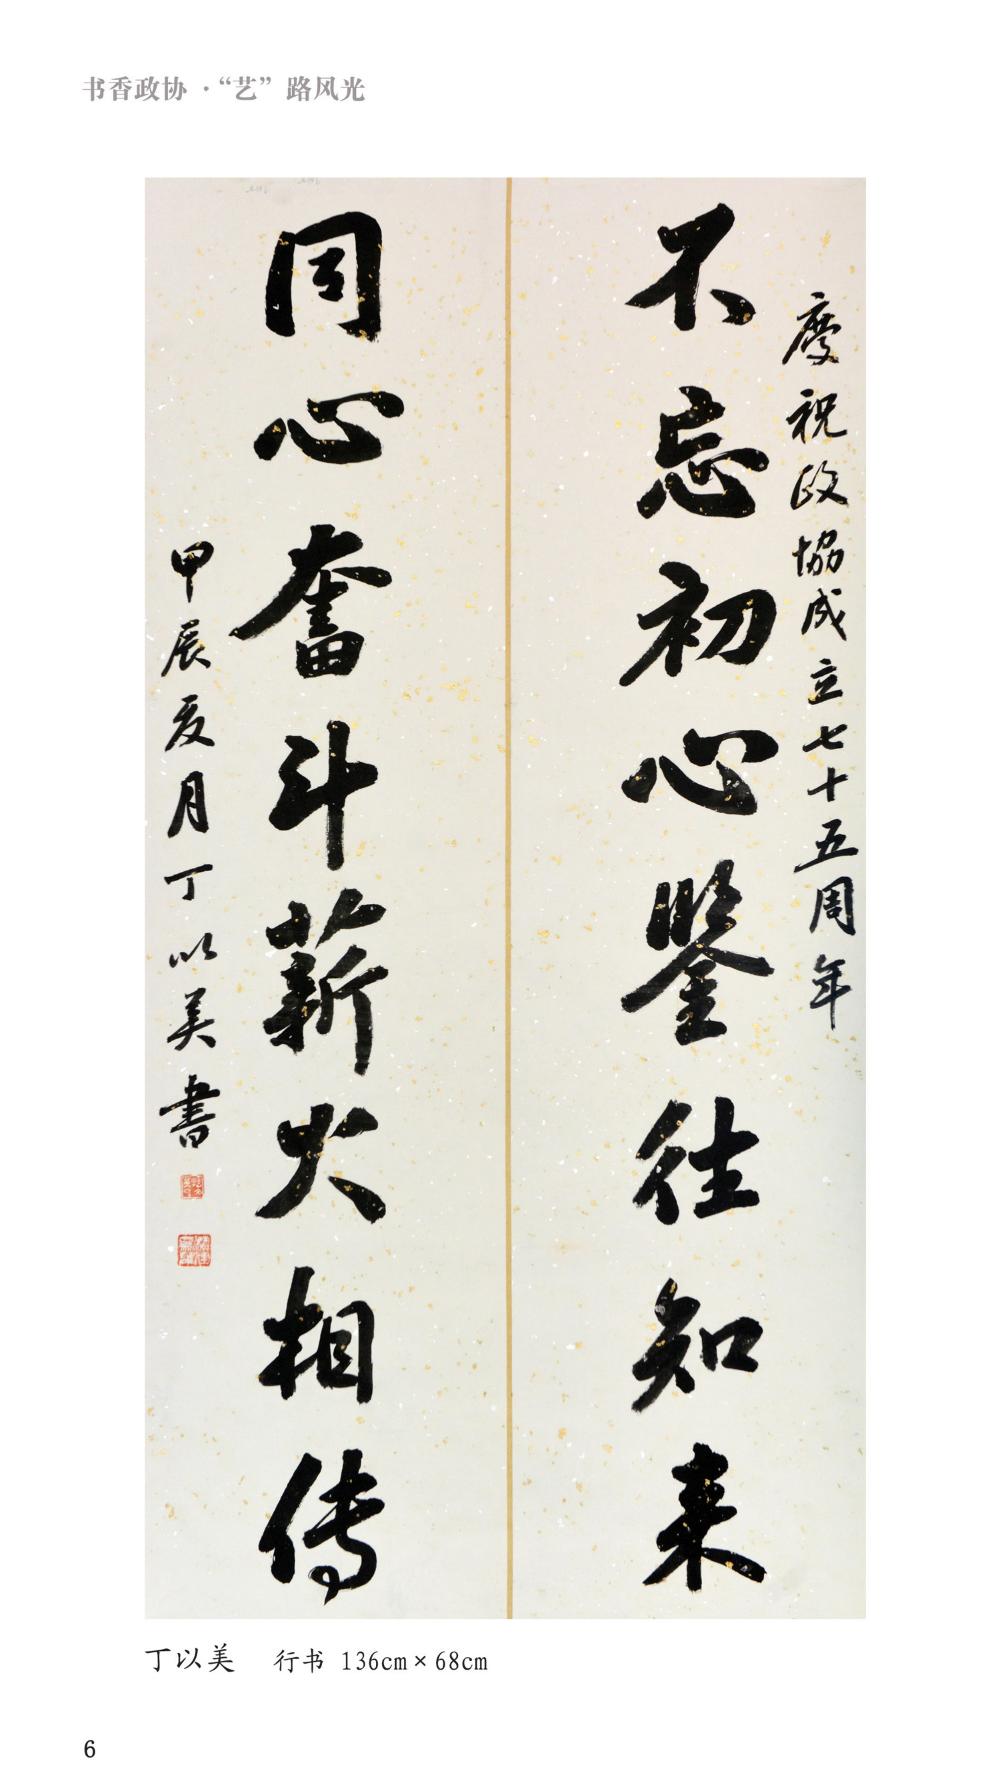 书香政协·“艺”路风光
慶祝政協成立七十五周年
不忘初心鉴往知来
同心奋斗薪火相传
甲辰夏月丁以美書
丁以美 行书 136cm×68cm
6